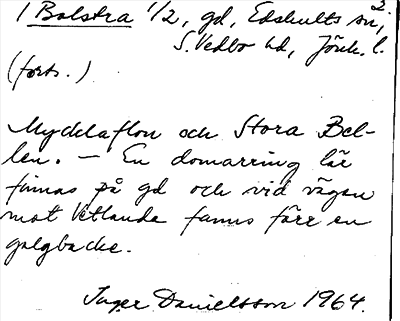 1 Bolstra 1/2, gd, Edshults sn, 2.
S. Vedbo hd, Jönk. l.
(forts.)
Mycklaflon och Stora Bel-
len. – En domarring lär
finnas på gd och vid vägen
mot Vetlanda fanns förr en
galgbacke.
Inger Danielsson 1964.